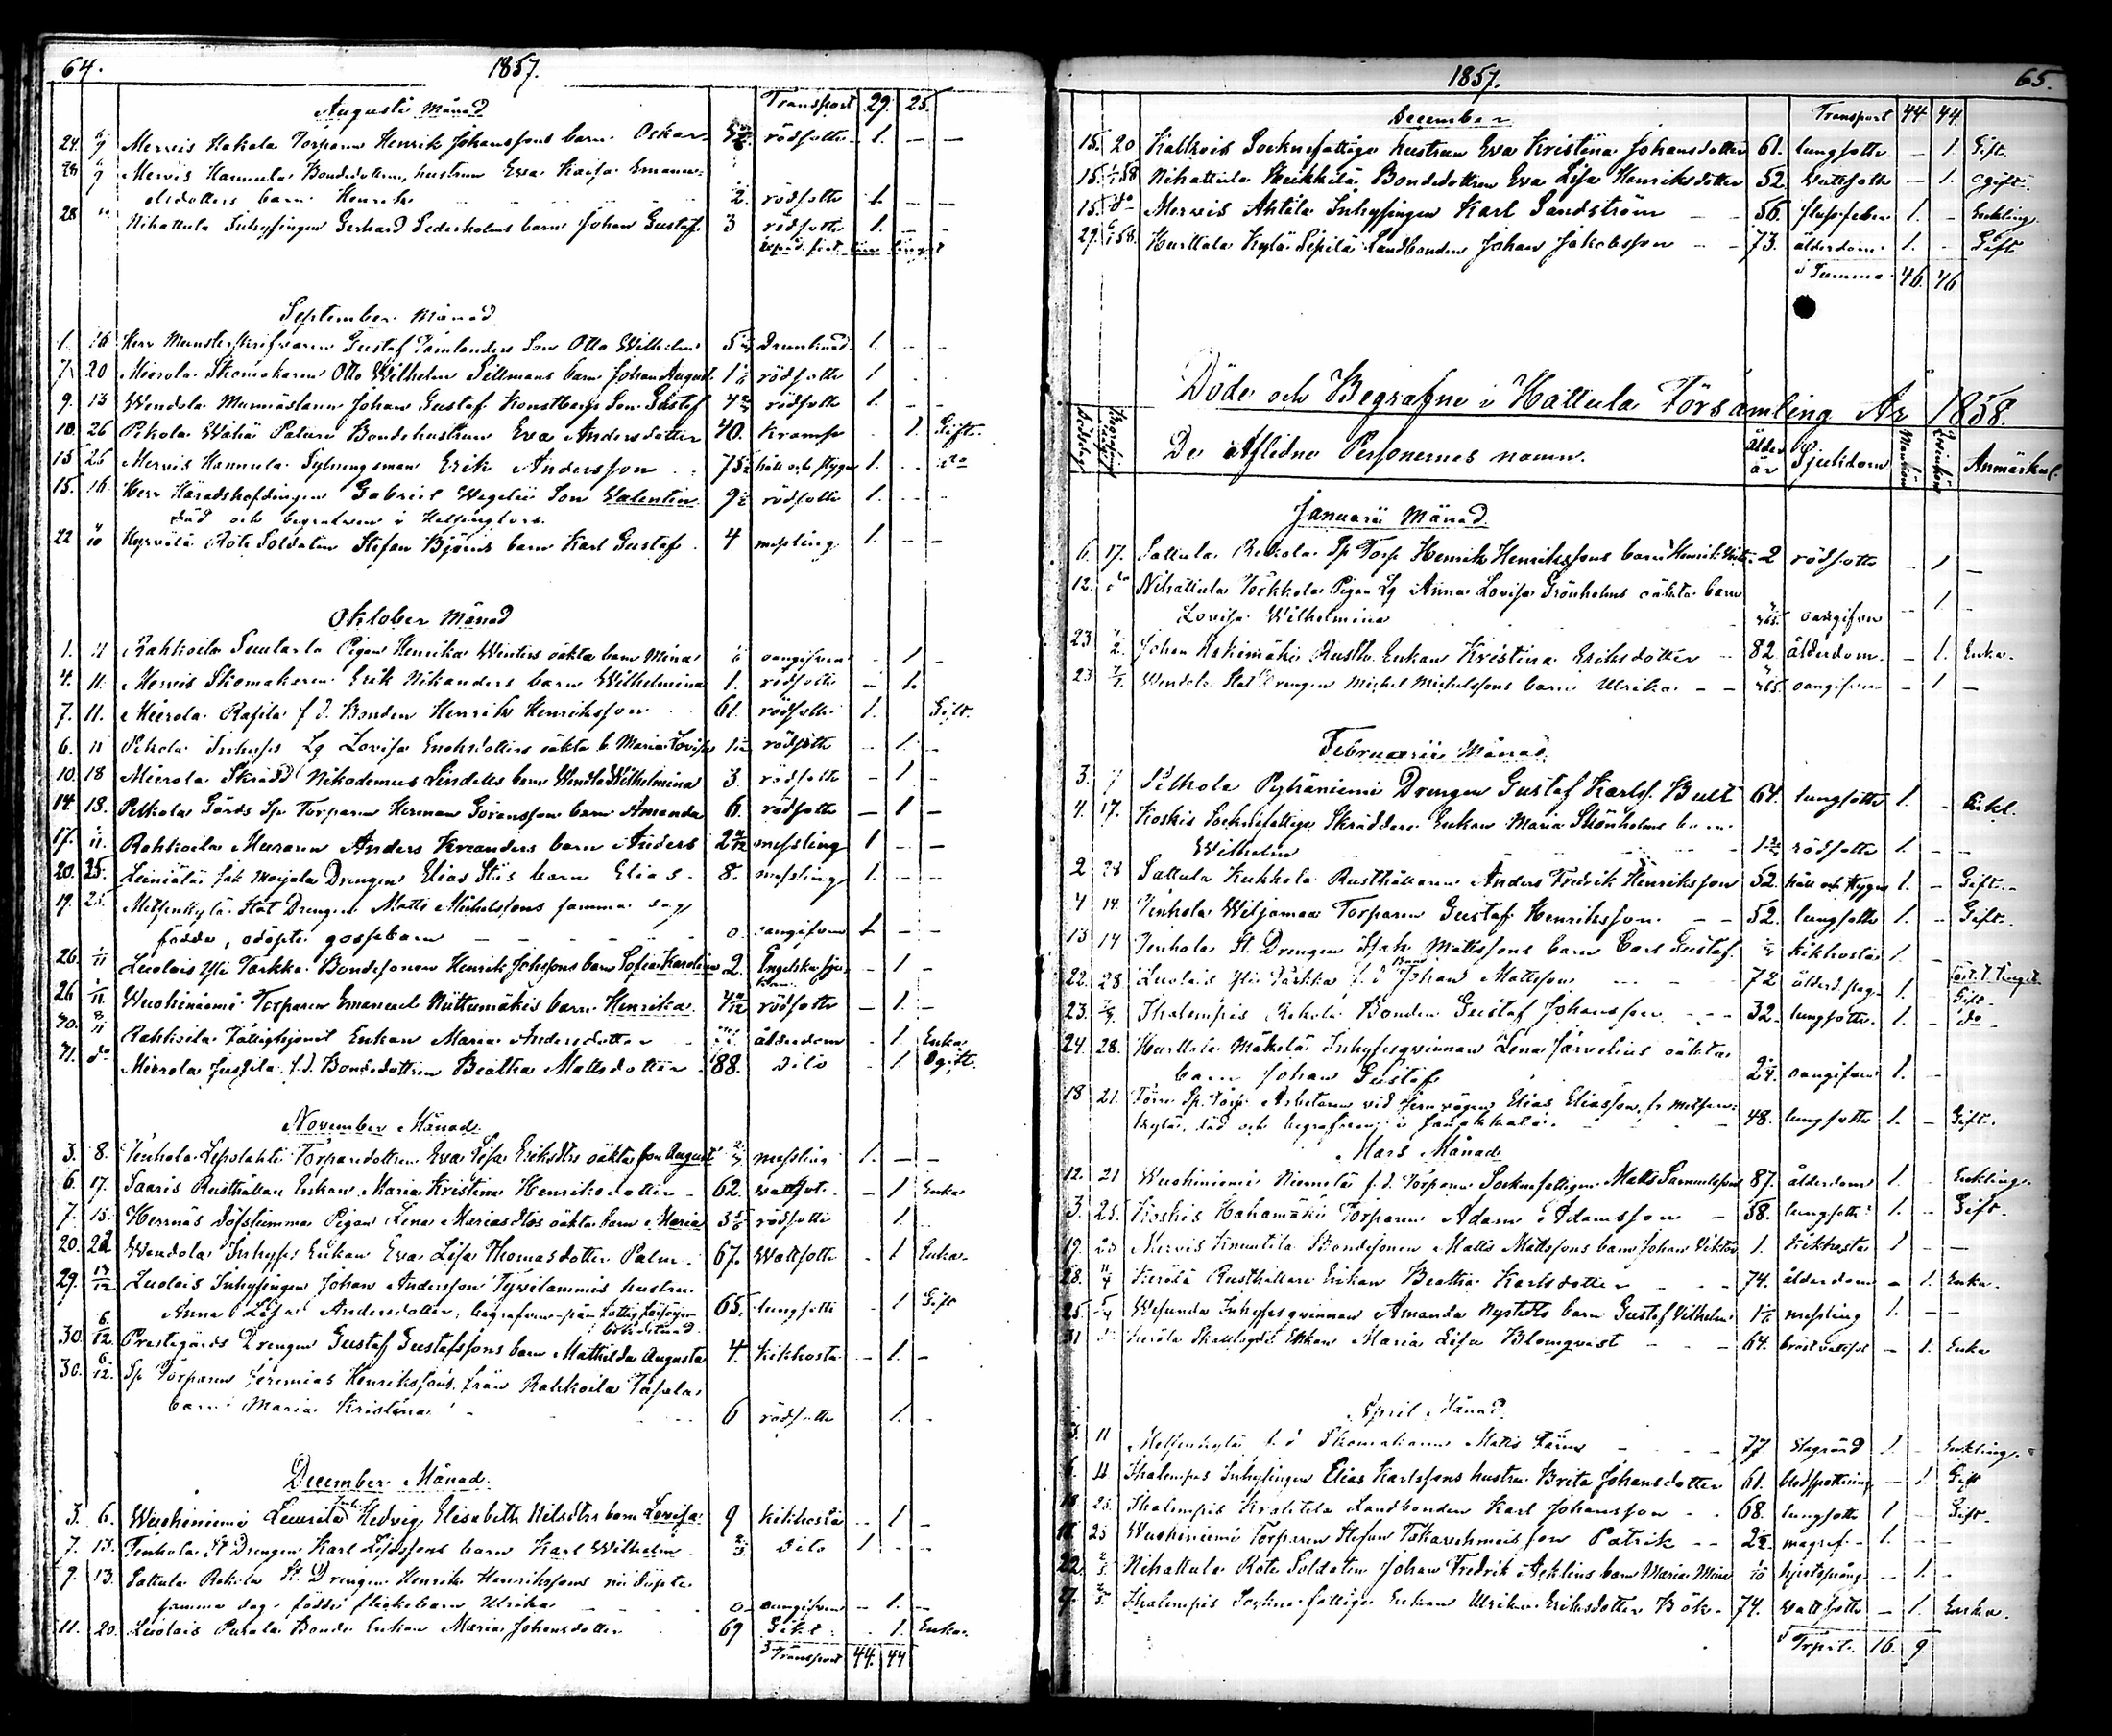 64. 1857.
Augusti Månad Transport 29. 25.
24. 6/9 Mervis Hakala Torparen Henrik Johanssons barn Oskar rödsotte 1. — —
28 6/9 Mervis Hannula Bondedottren, hustrun Eva Kaisa Emanu-
elsdotters barn Henrik rödsotte 1. — —
28 " Nihattula Inhysingen Gerhard Cederholms barn Johan Gustaf. 3 rödsotte 1. — —
September Månad
1. 16 Herr Munsterskrifvaren Gustaf Tamlanders Son Otto Wilhelm 5 Drunknad. 1. — —
7. 20 Mierola Skomakaren Otto Wilhelm Sillmans barn Johan August rödsotte 1
9. 13 Wendola Gustaf Son Gustaf rödsotte 1. — —
10. 26 Pekola Wähä Paturi Bondehustrun Eva Andersdotter 40. Kramp 1. Gift.
15 25 Mervis Hannula Sytningsman Erik Andersson 75 håll och stygn 1. do
15. 16 Herr Häradshöfdingen Gabriel Wegelii Son Valentin 9 rödsotte 1.
död och begrafven i Helsingfors.
22 4/10 Hyrvälä Rote Soldaten Stefan Björns barn Karl Gustaf 4 messling 1. — —
Oktober Månad
1. 11 Rahkoila Pigan Henrika Winters oäkta barn Mina oangifven — 1. —
4. 11. Mervis Skomakaren Erik Nikanders barn Wilhelmina 1. rödsotte — 1.
7. 11. Mierola Rasila f. d. Bonden Henrik Henriksson 61. rödsotte 1. Gift.
6. 11 Pekola Inhyses Lg Lovisa Enoksdotters oäkta b. Maria Lovisa rödsotte — 1. —
10. 18 Mierola Skrädd. Nikodemus Lindells barn Wendla Wilhelmina 3 rödsotte — 1 —
14. 18. Pelkola Gårds Sp Torparen Herman Göransson barn Amanda 6. rödsotte — 1 —
17. 11. Rahkoila Muraren Anders Kreanders barn Anders 2 messling 1 — —
20. 25. Leiniälä Marjala Drengen Elias Stiis barn Elias 8. messling 1. — —
19. 25. Metsenkylä Stat Drengen Matti Michelssons samma dag
födde, odöpte gossebarn 0. oangifven 1. — —
26. 1/11 Luolais Yli Tarkka Bondesonen Henrik Johssons barn Sofia Karolina 2. Engelska sju-
26 1/11. Wuohiniemi Torparen Emanuel Niittumäkis barn Henrika. 4 rödsotte — 1. —
30. 8/11 Rahkoila Fattighjonet Enkan Maria Andersdotter ålderdom . 1. Enka
31. do Mierola Jussila f. d. Bondedottren Beatha Mattsdotter 88. dito . 1. Ogift.
November Månad.
3. 8. Tenhola Lepolahti Torparedottren Eva Lisa Eriksdtrs oäkta son August messling 1. — —
6. 17. Saaris Rusthållare Enkan Maria Kristina Henriksdotter — 62. wattsot. — 1 Enka
7. 15. Herrnäs Pigan Lena Mariasdtrs oäkta barn Maria 3 rödsotte 1.
20. 22 Wendola Inhyses Enkan Eva Lisa Thomasdotter Palm. 67. Wattsotte — 1 Enka.
29. 13/12 Luolais Inhysingen Johan Andersson hustru
Anna Lisa Andersdotter, begrafven från fattigförsörjn. 65. lungsotte . 1 Gift
30. 6/12. Prestegårds Drengen Gustaf Gustafssons barn Mathilda Augusta 4. Kikhosta — 1. —
30. 6/12. Sp Torparen Jeremias Henrikssons från Rahkoila Tapola
barn Maria Kristina 6 rödsotte 1.
December Månad.
3. 6. Wuohiniemi Hedvig Elisabeth Nilsdtrs barn Lovisa 9 Kikhosta — 1 —
7. 13. Tenhola St Drengen Karl barn Karl Wilhelm dito 1 — —
9. 13. Sattula Rekola St. Drengen Henrik Henrikssons nödöpte
samma dag födde flickebarn Ulrika 0. oangifven — 1. —
11. 20. Luolais Purala Bonde Enkan Maria Johansdotter 69 Gikt . 1. Enka.
Transport 44. 44
1857. 65.
December Transport 44 44
15. 20 Kalkois Socknefattige hustrun Eva Kristina Johansdotter 61. lungsotte — 1. Gift.
15. Nihattula Heikkilä Bondedottren Eva Lisa Henriksdotter 52. Wattsotte — 1. Ogift.
15. do Mervis Ahtila Inhysingen Karl Sandström — — 56. 1. — Enkling.
29. Hurttala Kylä Sepilä Landbonden Johan Jakobsson — — 73. ålderdom. 1. — Gift
Summa 46. 46
Döde och Begrafne i Hattula Församling År 1858.
De Aflidne Personernes namn. Ålder år Sjukdom Mankön Qvinkön Anmärkn.
Januarii Månad.
6. 17. Sattula Rekola Sp Torp Henrik Henrikssons barn Henrik 2 rödsotte — 1 —
12. do Nihattula Torkkola Pigan Lg Anna Lovisa Grönholms oäkta barn
Lovisa Wilhelmina oangifven — 1 —
23 7/2. Johan Askimäki Rusth. Enkan Kristina Eriksdotter — 82 ålderdom. — 1. Enka.
23 7/2. Wendola Stat Drengen Michel Michelssons barn Ulrika — — oangifven — 1 —
Februarii Månad.
3. 7 Pelkola Pyhäniemi Drengen Gustaf Karls. Bult 61. lungsotte 1. — Enkl.
4. 17. Koskis Socknefattige Skräddare Enkan Maria Skönholms barn
Wilhelm rödsotte 1. —
2 28 Sattula Kukkola Rusthållaren Anders Fredrik Henriksson 52. håll och stygn 1. — Gift.
4 14. Tenhola Wiljamaa Torparen Gustaf Henriksson — — 52. lungsotte 1. — Gift.
13 14 Tenhola St. Drengen Isak Mattssons barn Carl Gustaf. kikhosta 1. —
22. 28 Luolais Yli Tarkka f. d. Johan Mattsson 72 1.
23. Ihalempis Rekola Bonden Gustaf Johansson — — 32. lungsotte. 1. — do
24 28. Hurttala Mäkelä Inhysesqvinnan Lena Järvelius oäkta
barn Johan Gustaf oangifven 1. —
18 21. Sp. Torp. Arbetaren vid jernvägen Elias Eliasson fr Metsen-
kylä, död och begrafven i Janakkala. 48. lungsotte 1. — Gift.
Mars Månad
12. 21 Wuohiniemi Niemelä f. d. Torparen Socknefattigen Matts Samuelsson 87. ålderdom 1. Enkling.
3. 25. Koskis Hakamäki Torparen Adam Adamsson — 58. lungsotte 1. — Gift.
19. 25 Mervis Knuutila Bondesonen Matts Mattssons barn Johan Viktor 1. Kikhosta 1 — —
28. 11/4 Kerälä Rusthållare Enkan Beatha Karlsdotter 74. ålderdom — 1. Enka.
25. 5/4 Wesunda Inhysesqvinnan Amanda Nysteds barn Gustaf Vilhelm messling 1. —
31 Maria Lisa Blomqvist 64. — 1. Enka
April Månad.
3. 11 Metsenkylä f. d. Skomakaren Matts Färm 77 Slagrörd 1. — Enkling.
6. 11. Ihalempis Inhysingen Elias Karlssons hustru Brita Johansdotter 61. blodspottning — 1. Gift
18 25. Ihalempis Landbonden Karl Johansson 68. lungsotte 1 — Gift.
18. 25 Wuohiniemi Torparen Stefan son Patrik — — magref. 1. — —
22. 2/5. Nihattula Rote Soldaten Johan Fredrik Äcklins barn Maria Mina hjertsprång — 1. —
2/5. Ihalempis Sockne fattige Enkan Ulrika Eriksdotter Böök. 74. wattsotte — 1. Enka.
Trprt. 16. 9.